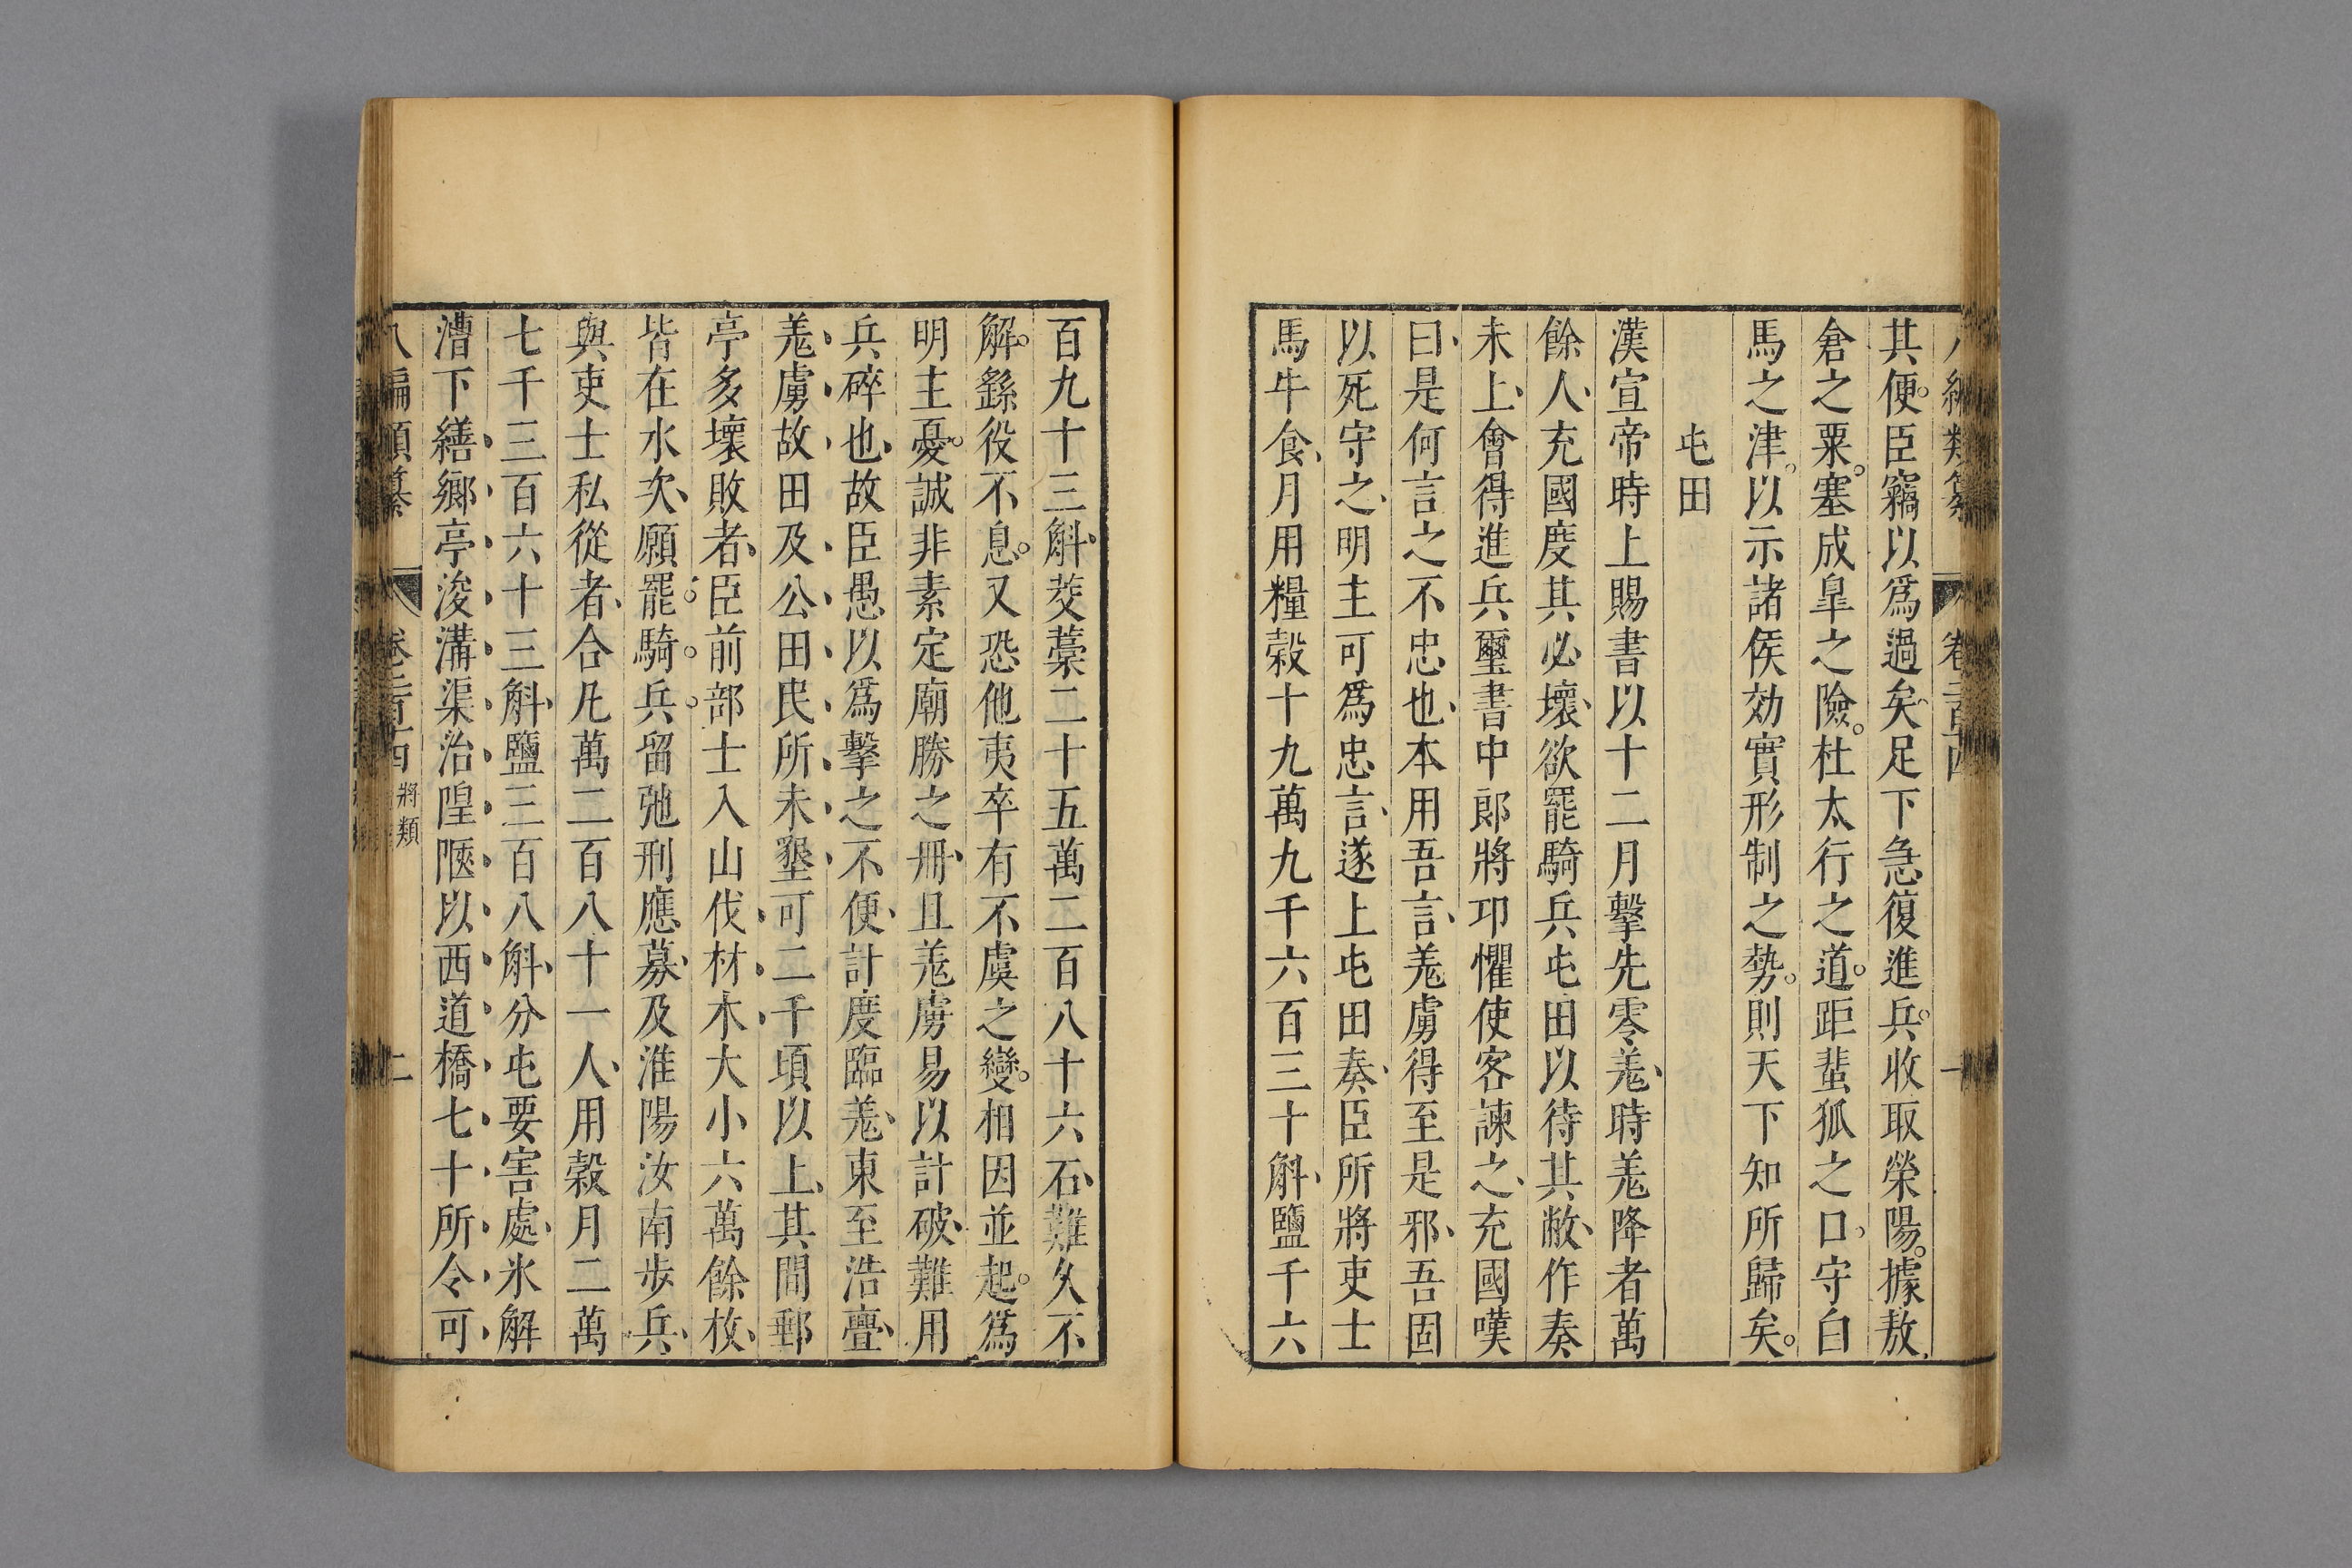 其便臣竊以爲過矣足下急復進兵收取榮陽據敖
倉之粟塞成皐之險杜太行之道距蜚狐之口守白
馬之津以示諸侯効實形制之勢則天下知所歸矣
屯田
漢宣帝時上賜書以十二月擊先零羗時羗降者萬
餘人充國度其必壞欲罷騎兵屯田以待其敝作奏
未上會得進兵璽書中郎將卭懼使客諫之充國嘆
曰是何言之不忠也本用吾言羗虜得至是邪吾固
以死守之明主可爲忠言遂上屯田奏臣所將吏士
馬牛食月用糧穀十九萬九千六百三十斛鹽千六
百九十三斛茭藁二十五萬二百八十六石難久不
解繇役不息又恐他夷卒有不虞之變相因並起爲
明主憂誠非素定廟勝之冊且羗虜易以計破難用
兵碎也故臣愚以爲擊之不便計度臨羗東至浩亹
羗虜故田及公田民所未墾可二千頃以上其間郵
亭多壞敗者臣前部士入山伐材木大小六萬餘枚
皆在水次願罷騎兵留弛刑應募及淮陽汝南步兵
與吏士私從者合凡萬二百八十一人用穀月二萬
七千三百六十三斛鹽三百八斛分屯要害處氷解
漕下繕鄉亭浚溝渠治隍陿以西道橋七十所令可
八編類纂 卷二百十四 將類 二